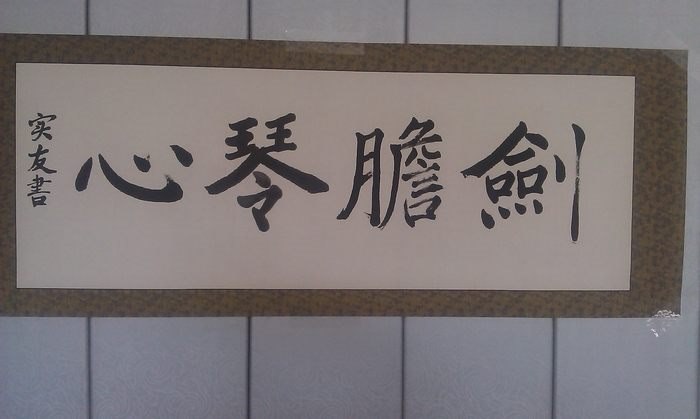 劍膽琴心
实友書